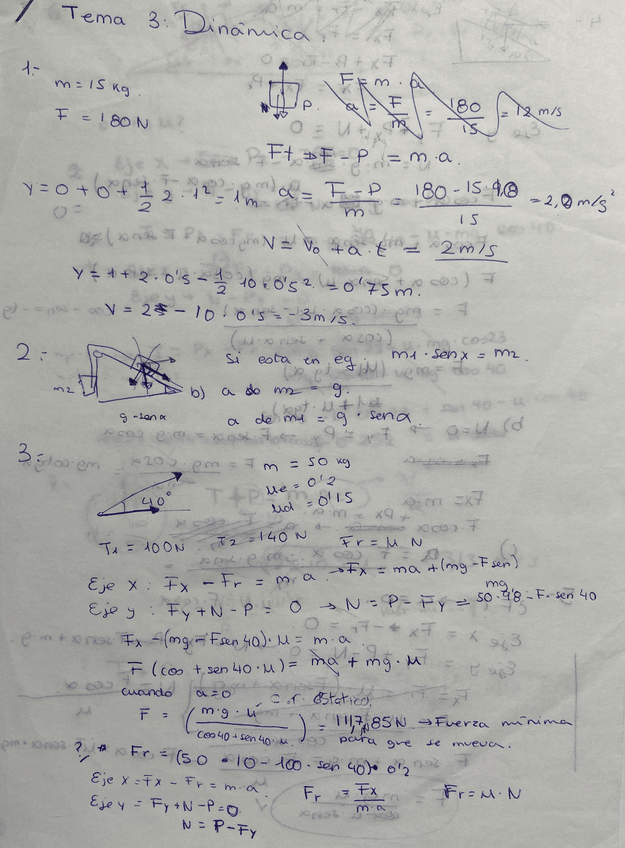 Tema 3: Dinámica.
1:-
m = 15 kg.
F = 180 N
P.
F = m · a
a = F/m = 180/15 = 12 m/s
Ft ⇒ F - P = m · a.
y = 0 + 0 + 1/2 2 · 1² = 1m
a = F - P / m = 180 - 15 · 9,8 / 15 = 2,2 m/s²
V = V₀ + a · t = 2 m/s
y = 1 + 2 · 0's - 1/2 10 · 0's² = 0'75 m.
V = 2 - 10 · 0's = -3 m/s.
2:-
m2
g · sen α
Si esta en eq. m1 · sen x = m2
b) a de m2 = g.
a de m1 = g · sen α.
3:-
40°
m = 50 kg
μe = 0'2
μd = 0'15
T1 = 100N T2 = 140 N Fr = μ N
Eje x: Fx - Fr = m · a. → Fx = ma + (mg - F sen)
Eje y: Fy + N - P = 0 → N = P - Fy = mg 50 · 9'8 - F · sen 40
Fx - (mg - F sen 40) · μ = m · a
F (cos + sen 40 · μ) = ma + mg · μ
cuando a = 0 c. r. estático
F = (m · g · μ / cos 40 + sen 40 · μ) = 111,85 N → Fuerza mínima
para que se mueva.
? * Fr = (50 · 10 - 100 · sen 40) · 0'2
Eje x = Fx - Fr = m · a.
Fr = Fx / m · a
Fr = μ · N
Eje y = Fy + N - P = 0.
N = P - Fy